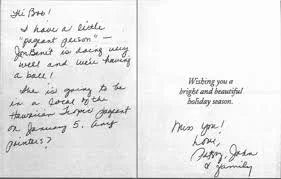 Hi Bob!
I have a little
"pageant person" –
JonBenét is doing very
well and we're having
a ball!
She is going to be
in a local to the
Hawaiian Tropic pageant
on January 5. Any
pointers?
Wishing you a
bright and beautiful
holiday season.
Miss you!
Love,
Patsy, John
& family